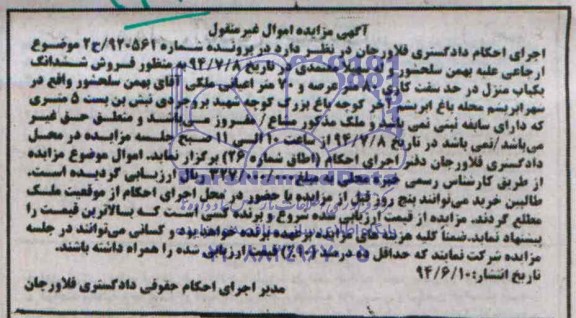 آگهی مزایده اموال غیرمنقول
اجرای احکام دادگستری فلاورجان در نظر دارد در پرونده شماره ۹۲۰۵۶۱/ح۲ موضوع
ارجاعی علیه بهمن سلحشور و له محمدی در تاریخ ۹۴/۷/۸ به منظور فروش ششدانگ
یکباب منزل در حد سفت کاری ۸۰ متر عرصه و ۷۰ متر اعیانی ملکی آقای بهمن سلحشور واقع در
شهر ابریشم محله باغ ابریشم آخر کوچه باغ بزرگ کوچه شهید بروجردی نبش بن بست ۵ متری
که دارای سابقه ثبتی نمی باشد و ملک مذکور مشاع / مفروز می‌باشد و متعلق حق غیر
می‌باشد/نمی باشد در تاریخ ۹۴/۷/۸ از ساعت ۱۰ الی ۱۱ صبح جلسه مزایده در محل
دادگستری فلاورجان دفتر اجرای احکام (اطاق شماره ۲۶) برگزار نماید. اموال موضوع مزایده
از طریق کارشناس رسمی خبره محلی به مبلغ ۳۲۷/۰۰۰/۰۰۰ ریال ارزیابی گردیده است.
طالبین خرید می‌توانند پنج روز قبل از مزایده با حضور در محل اجرای احکام از موقعیت ملک
مطلع گردند. مزایده از قیمت ارزیابی شده شروع و برنده کسی است که بالاترین قیمت را
پیشنهاد نماید. ضمناً کلیه هزینه های مزایده بر عهده خواهد بود و کسانی می‌توانند در جلسه
مزایده شرکت نمایند که حداقل ۵ درصد قیمت ارزیابی شده را همراه داشته باشند.
تاریخ انتشار: ۹۴/۶/۱۰
مدیر اجرای احکام حقوقی دادگستری فلاورجان